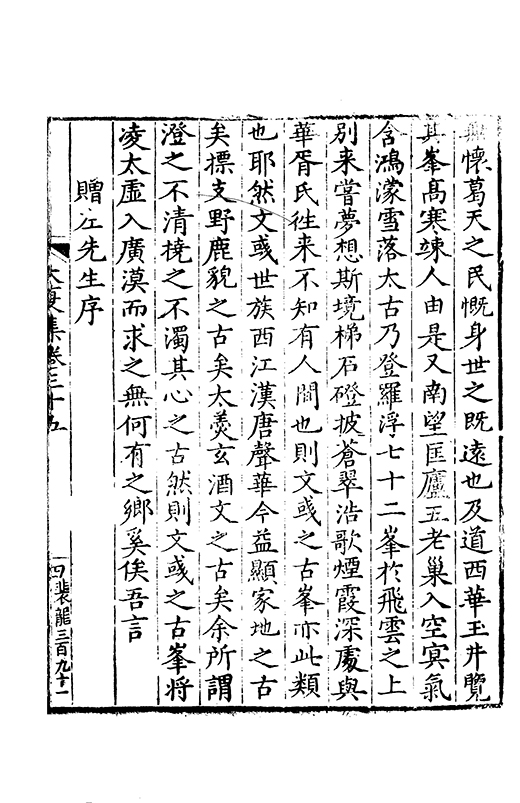 無懷葛天之民慨身世之既遠也及道西華玉井覽
其峯髙寒竦人由是又南望匡廬五老巢入空㝠氣
含鴻濛雪落太古乃登羅浮七十二峯於飛雲之上
别来嘗夢想斯境梯石磴披蒼翠浩歌煙霞深處與
華胥氏往来不知有人間也則文彧之古峯亦此類
也耶然文彧世族西江漢唐聲華今益顯家地之古
矣摽支野鹿貌之古矣太羮玄酒文之古矣余所謂
澄之不清撓之不濁其心之古然則文彧之古峯將
凌太虚入廣漠而求之無何有之鄉奚俟吾言
贈左先生序
大復集卷三十五
四 裴龍三百九十一